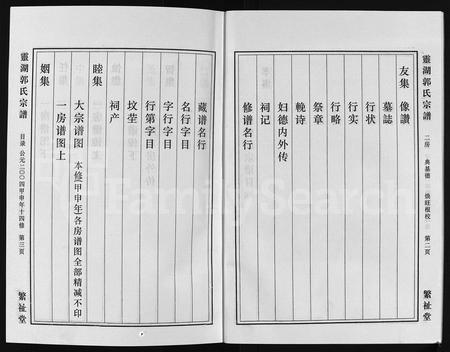 靈湖郭氏宗譜
二房 典基德 焕旺根校 第二頁
繁祉堂
友集 像讚
墓誌
行状
行略
行实
祭章
輓诗
妇德内外传
祠记
修谱名行
藏谱名行
名行字目
字行字目
行第字目
坟茔
祠产
睦集
大宗谱图 本修(甲申年)各房谱图全部精减不印
一房谱图上
姻集
靈湖郭氏宗譜
目录 公元二00四甲申年十四修 第三页
繁祉堂
FamilySearch